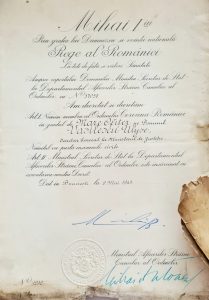 Mihai I
Prin grația lui Dumnezeu și voința națională
Rege al României
La toți de față și viitori, Sănătate
Asupra raportului Domnului Ministru Secretar de Stat
la Departamentul Afacerilor Străine Cancelar al
Ordinelor cu No.
Am decretat și decretăm
Art. I. Numim membru al Ordinului Coroana României
în gradul de Mare Ofițer pe Domnul
Vasilescu
Numitul va purta insemnele cuvenite
Art. II. Ministrul Nostru Secretar de Stat la Departamentul
Afacerilor Străine Cancelar al Ordinelor este însărcinat cu
executarea acestui Decret
Dat în București la
Ministrul Afacerilor Străine
Cancelar al Ordinelor